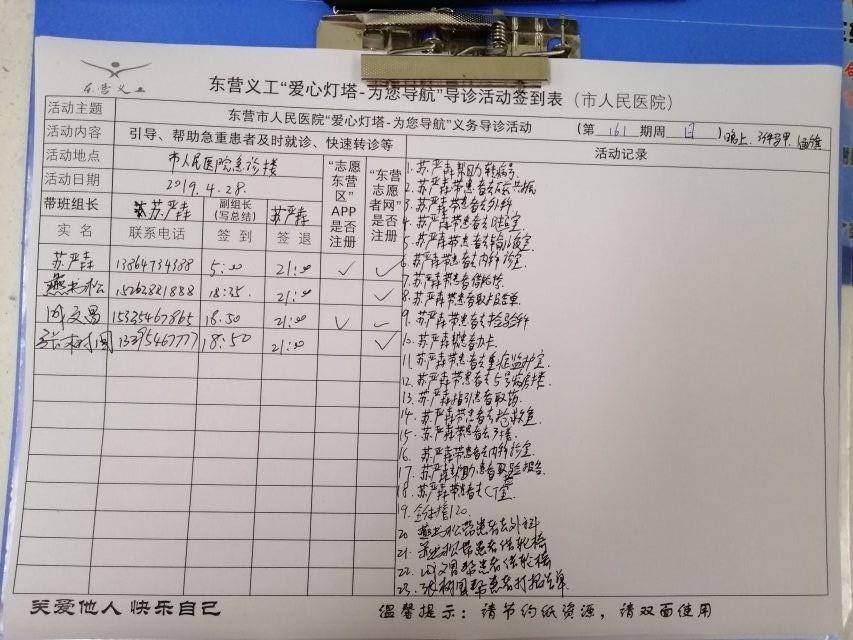 东营义工
东营义工“爱心灯塔-为您导航”导诊活动签到表（市人民医院）
活动主题 东营市人民医院“爱心灯塔-为您导航”义务导诊活动 (第 161 期周 日 ) 晚上
活动内容 引导、帮助急重患者及时就诊、快速转诊等
活动记录
活动地点 市人民医院急诊楼
活动日期 2019.4.28.
“志愿东营区”APP是否注册
“东营志愿者网”是否注册
带班组长 苏严森 副组长(写总结) 苏严森
实名 联系电话 签到 签退
苏严森 13864734388 5:00 21:00 ✓ ✓
15262881888 18:35. 21:00 ✓
成文昌 15335467865 18:50 21:00 ✓ ✓
张树国 13395467777 18:50 21:00 ✓
1. 苏严森帮助
2. 苏严森带患者去
3. 苏严森带患者去外科
4. 苏严森带患者去B超室.
5. 苏严森带患者去输液室.
6. 苏严森带患者去内科诊室.
7. 苏严森带患者借轮椅.
8. 苏严森带患者取报告单.
9. 苏严森带患者去检验科
10. 苏严森帮患者办卡
11. 苏严森带患者去重症监护室.
12. 苏严森带患者去5号病房楼.
13. 苏严森指引患者取药
14. 苏严森带患者去抢救室
15. 苏严森带患者去3楼.
16. 苏严森带患者去内科诊室.
17. 苏严森帮助患者取验报告.
18. 苏严森带患者去CT室
19. 全体接120.
20 带患者去外科
21. 帮患者借轮椅
22. 成文昌帮患者借轮椅
23. 张树国帮患者打报告单
关爱他人 快乐自己
温馨提示：请节约纸资源，请双面使用